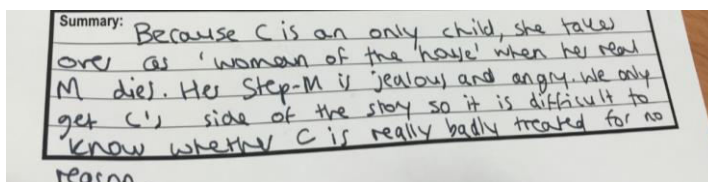 Summary: Because C is an only child, she takes
over as 'woman of the 'house' when her real
M dies. Her Step-M is jealous and angry. We only
get C's side of the story so it is difficult to
know whether C is really badly treated for no
reason